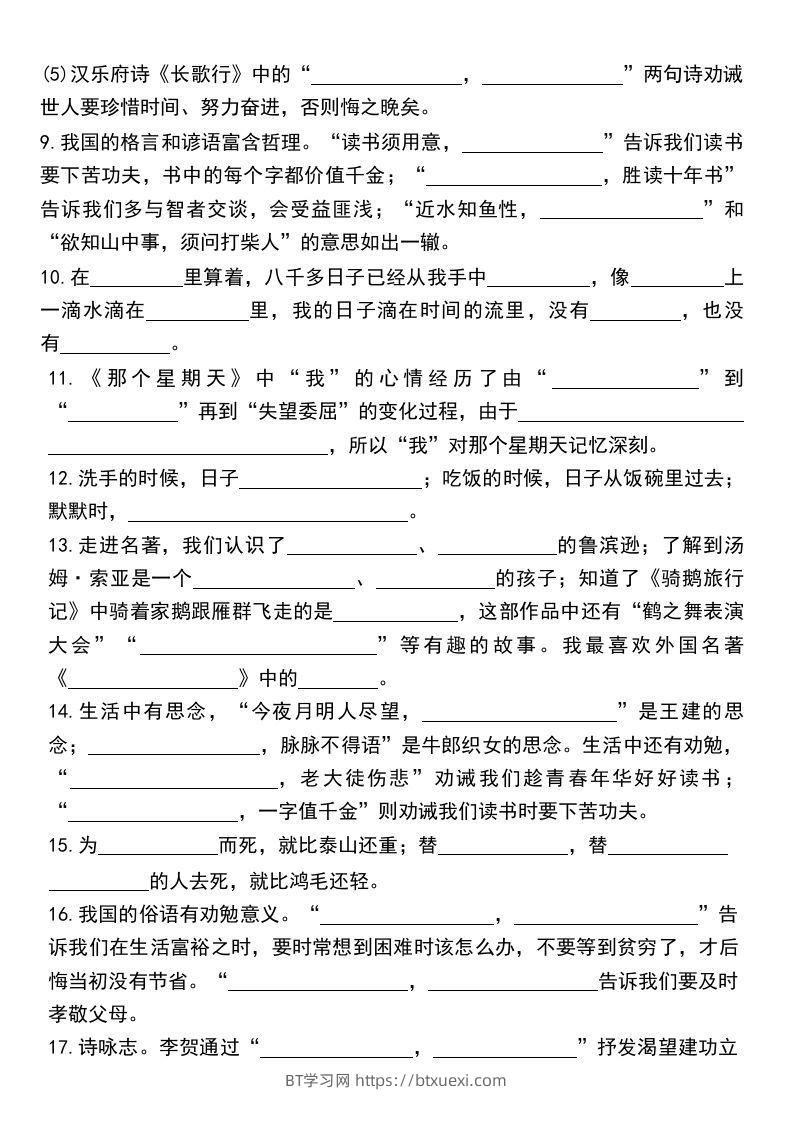 (5)汉乐府诗《长歌行》中的“______________，______________”两句诗劝诫
世人要珍惜时间、努力奋进，否则悔之晚矣。
9.我国的格言和谚语富含哲理。“读书须用意，______________”告诉我们读书
要下苦功夫，书中的每个字都价值千金；“________________，胜读十年书”
告诉我们多与智者交谈，会受益匪浅；“近水知鱼性，________________”和
“欲知山中事，须问打柴人”的意思如出一辙。
10.在_________里算着，八千多日子已经从我手中__________，像_________上
一滴水滴在__________里，我的日子滴在时间的流里，没有_________，也没
有___________。
11.《那个星期天》中“我”的心情经历了由“______________”到
“___________”再到“失望委屈”的变化过程，由于______________________
___________________________，所以“我”对那个星期天记忆深刻。
12.洗手的时候，日子__________________；吃饭的时候，日子从饭碗里过去；
默默时，____________________________。
13.走进名著，我们认识了_____________、____________的鲁滨逊；了解到汤
姆·索亚是一个________________、____________的孩子；知道了《骑鹅旅行
记》中骑着家鹅跟雁群飞走的是____________，这部作品中还有“鹤之舞表演
大会”“_______________________”等有趣的故事。我最喜欢外国名著
《_________________》中的________。
14.生活中有思念，“今夜月明人尽望，___________________”是王建的思
念；_________________，脉脉不得语”是牛郎织女的思念。生活中还有劝勉，
“____________________，老大徒伤悲”劝诫我们趁青春年华好好读书；
“_________________，一字值千金”则劝诫我们读书时要下苦功夫。
15.为____________而死，就比泰山还重；替_____________，替____________
__________的人去死，就比鸿毛还轻。
16.我国的俗语有劝勉意义。“_________________，__________________”告
诉我们在生活富裕之时，要时常想到困难时该怎么办，不要等到贫穷了，才后
悔当初没有节省。“__________________，_________________告诉我们要及时
孝敬父母。
17.诗咏志。李贺通过“_______________，______________”抒发渴望建功立
BT学习网 https://btxuexi.com